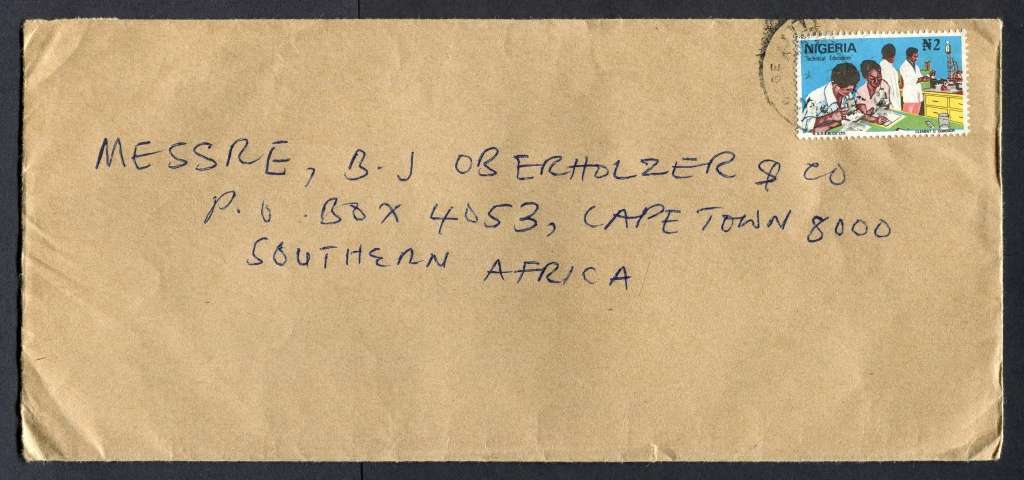 NIGERIA
N2
Technical Education
MESSRE, B.J OBERHOLZER & CO
P.O. BOX 4053, CAPE TOWN 8000
SOUTHERN AFRICA